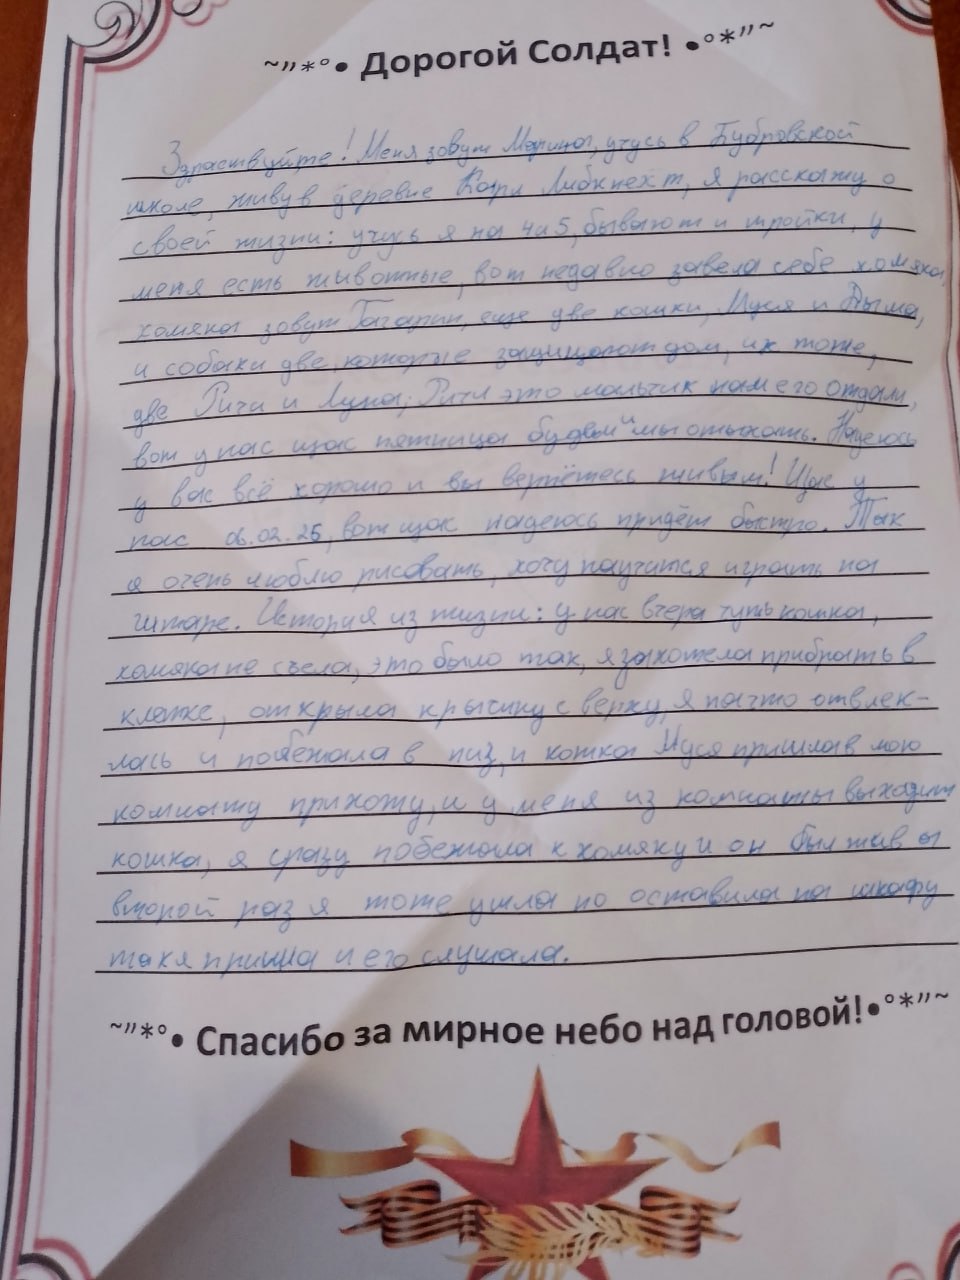 ~”*°• Дорогой Солдат! •°*”~
Здраствуйте! Меня зовут Марина, учусь в Бубровской
школе, живу в деревне Карл Либкнехт, я расскажу о
своей жизни: учусь я на 4 и 5, бывают и тройки, у
меня есть животные, вот недавно завела себе хомяка,
хомяка зовут Гагарин, еще две кошки, Муся и Дыма,
и собаки две, которые защищают дом, их тоже,
две Ричи и Луна; Ричи это мальчик нам его отдали,
вот у нас щас пятница будем мы отыхать. Надеюсь
у вас всё хорошо и вы вернётесь живым! Щас у
нас 06.02.25, вот щас надеюсь придёт быстро. Так
я очень люблю рисовать, хочу научится играть на
гитаре. История из жизни: у нас вчера чуть кошка,
хомяка не съела, это было так, я захотела прибрать в
клетке, открыла крышку с верху, я на что отвлек-
лась и побежала в низ, и кошка Муся пришла в мою
комнату прихожу, и у меня из комнаты выходит
кошка, я сразу побежала к хомяку и он был жив а
второй раз я тоже ушла но оставила на шкафу
так я пришла и его слушала.
~”*°• Спасибо за мирное небо над головой!•°*”~